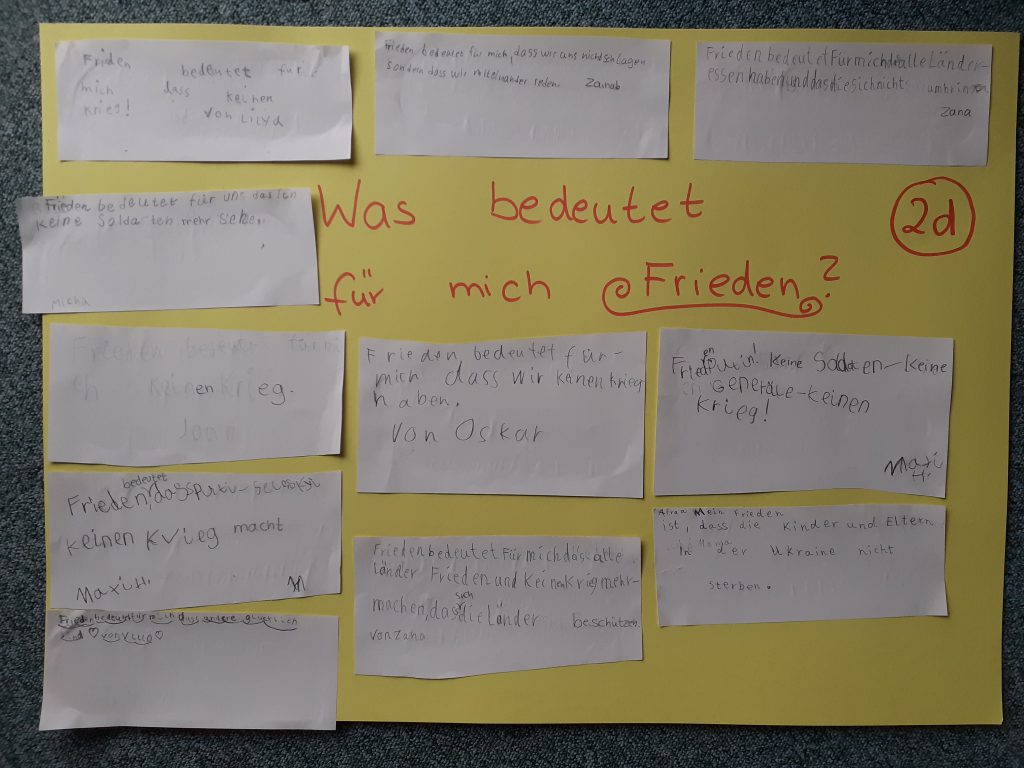 Friden bedeutet für
mich dass keinen
kries!
von Lilya
Frieden bedeutet für mich, dass wir uns nicht schlagen
sondern dass wir miteinander reden. Zainab
Frieden bedeutet Für mich alle Länder-
essen haben und das die Sich nicht umbringen.
Zana
Frieden bedeutet für uns das ich
keine Soldaten mehr sehe.
Micha
Was bedeutet
für mich Frieden?
2d
Frieden für mi
ch keinen krieg.
Frieden, bedeutet für-
mich dass wir kenen krieg
haben.
von Oskar
Frieden keine Soldaten-keine
Generäle-keinen
Krieg!
Maxi
H.
Frieden, bedeutet dass
keinen Kvieg macht
Maxi H. M
Frieden bedeutet Für mich dass alle
länder Frieden und Kein Krieg mehr-
machen, das sich die Länder beschützen.
von Zana
Mein Frieden
ist, dass die Kinder und Eltern
in der Ukraine nicht
sterben.
Frieden bedeutet für mich das andere glücklich
sind ♡ von ♡